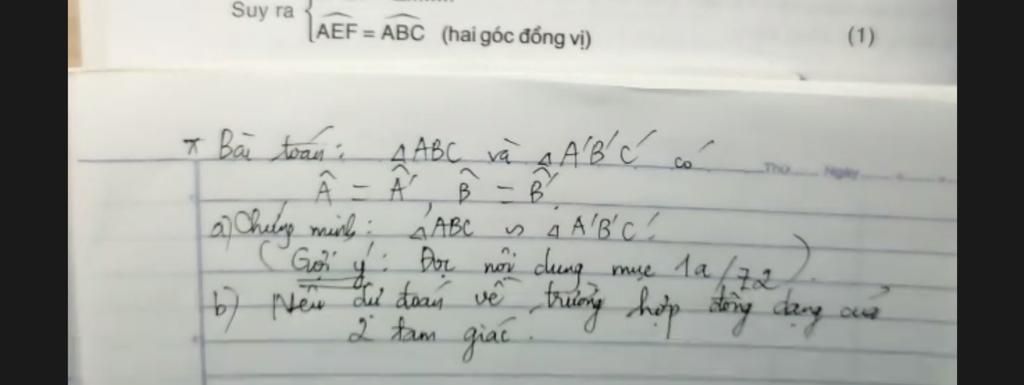 Suy ra
AEF = ABC (hai góc đồng vị) (1)
* Bài toán: ΔABC và ΔA'B'C' có
Thứ Ngày
Â = Â', B̂ = B̂'.
a) Chứng minh: ΔABC ∽ ΔA'B'C'.
(Gợi ý: Đọc nội dung mục 1a/72).
b) Nêu dự đoán về trường hợp đồng dạng của
2 tam giác.